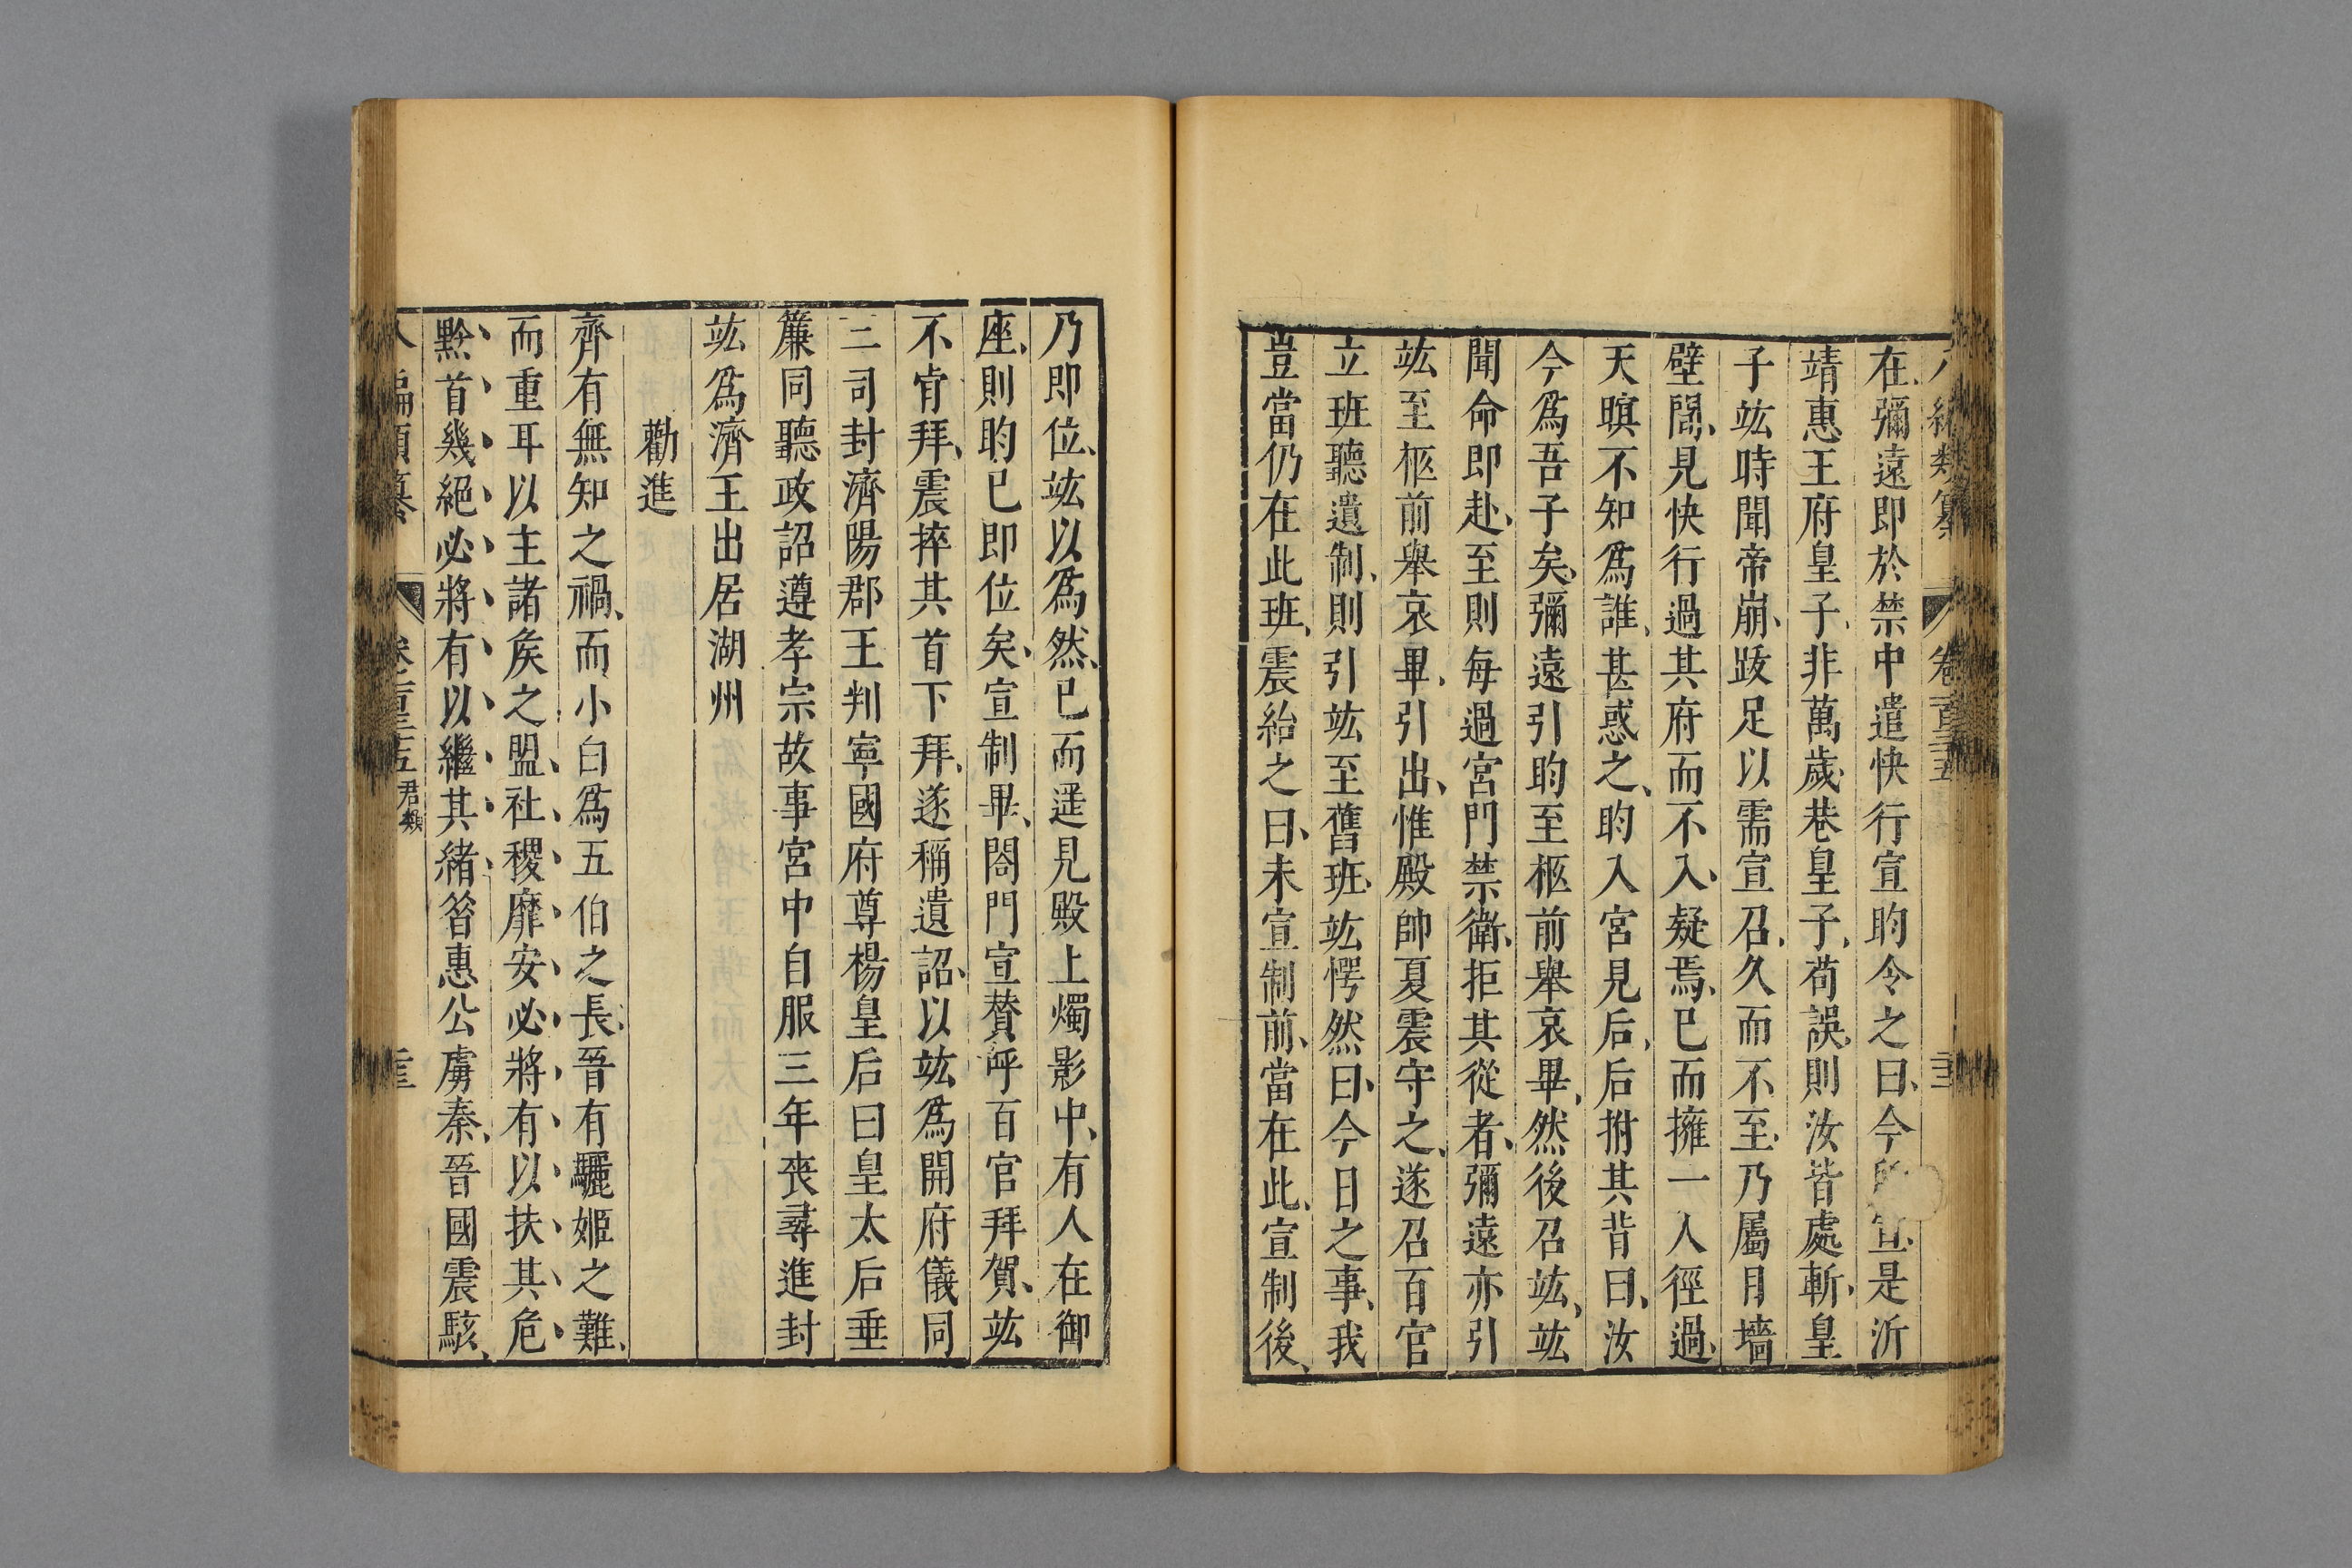 編類纂 卷一百三五
在彌遠即於禁中遣快行宣昀令之曰今宣是沂
靖惠王府皇子非萬歲巷皇子苟誤則汝皆處斬皇
子竑時聞帝崩跂足以需宣召久而不至乃屬目墻
壁間見快行過其府而不入疑焉已而擁一人徑過
天暝不知爲誰甚惑之昀入宮見后后拊其背曰汝
今爲吾子矣彌遠引昀至柩前舉哀畢然後召竑竑
聞命即赴至則每過宮門禁衛拒其從者彌遠亦引
竑至柩前舉哀畢引出惟殿帥夏震守之遂召百官
立班聽遺制則引竑至舊班竑愕然曰今日之事我
豈當仍在此班震紿之曰未宣制前當在此宣制後
乃即位竑以爲然已而遥見殿上燭影中有人在御
座則昀已即位矣宣制畢閤門宣賛呼百官拜賀竑
不肯拜震捽其首下拜遂稱遺詔以竑爲開府儀同
三司封濟陽郡王判寧國府尊楊皇后曰皇太后垂
簾同聽政詔遵孝宗故事宮中自服三年喪尋進封
竑爲濟王出居湖州
勸進
齊有無知之禍而小白爲五伯之長晉有驪姬之難
而重耳以主諸矦之盟社稷靡安必將有以扶其危
黔首幾絕必將有以繼其緒昝惠公虜秦晉國震駭
編類纂 卷一百三五 君類